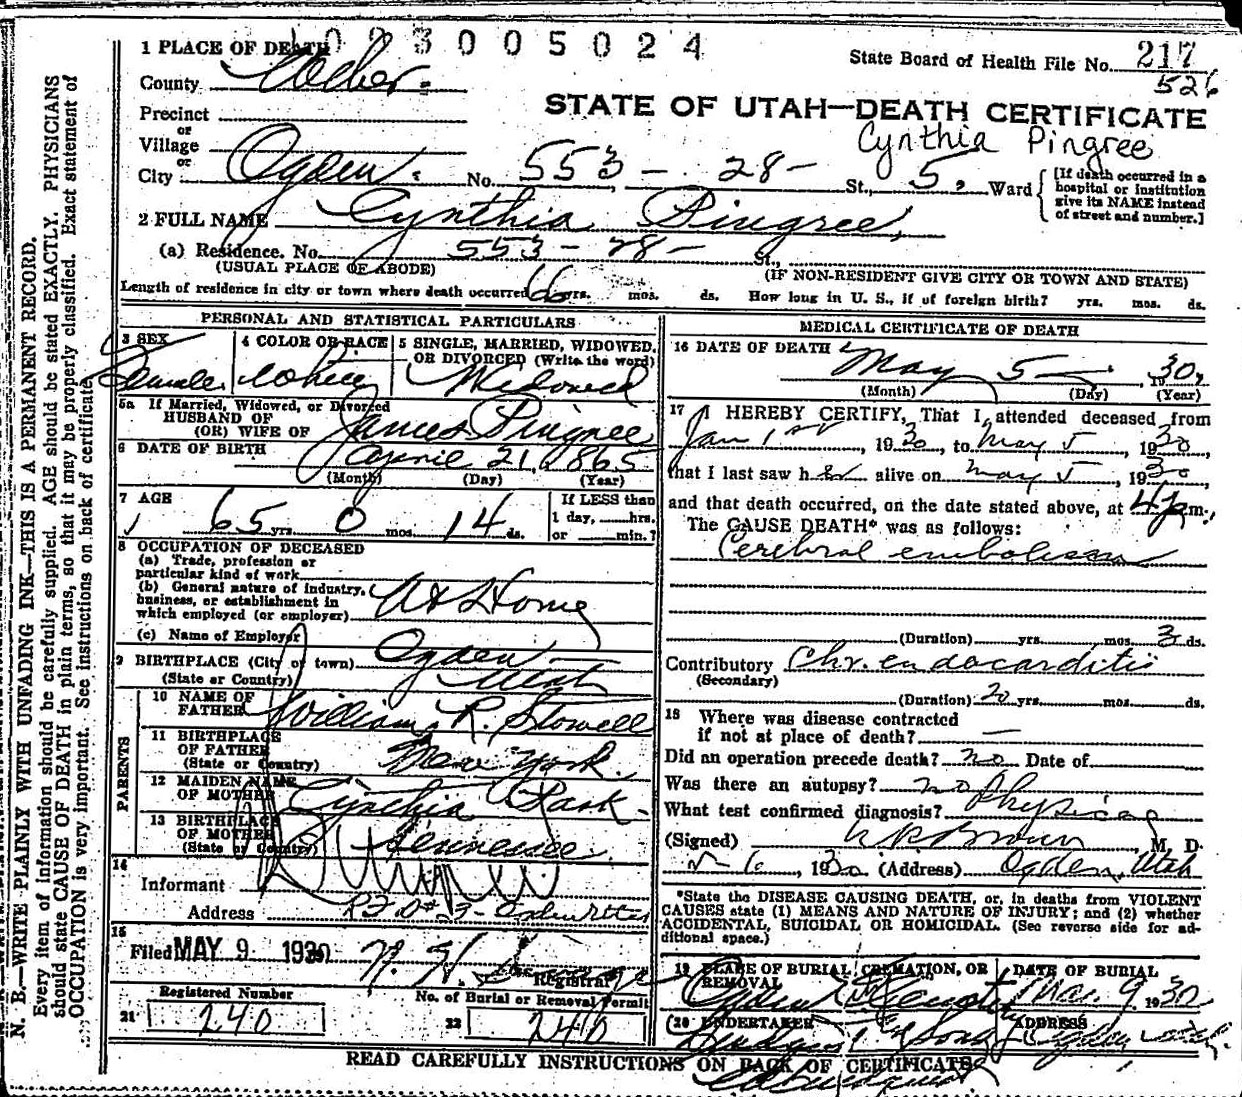 1023005024
1 PLACE OF DEATH
State Board of Health File No. 217
526
County Weber
STATE OF UTAH—DEATH CERTIFICATE
Precinct
or
Village
Cynthia Pingree
or
City Ogden No. 553 - 28 - St., 5, Ward
[If death occurred in a hospital or institution give its NAME instead of street and number.]
2 FULL NAME Cynthia Pingree
(a) Residence. No. 553 - 28 - St.,
(USUAL PLACE OF ABODE) (IF NON-RESIDENT GIVE CITY OR TOWN AND STATE)
Length of residence in city or town where death occurred yrs. mos. ds. How long in U. S., if of foreign birth? yrs. mos. ds.
PERSONAL AND STATISTICAL PARTICULARS
3 SEX Female
4 COLOR OR RACE White
5 SINGLE, MARRIED, WIDOWED, OR DIVORCED (Write the word) Widowed
5a If Married, Widowed, or Divorced
HUSBAND OF
(OR) WIFE OF James Pingree
6 DATE OF BIRTH April 21, 1865
(Month) (Day) (Year)
7 AGE 65 yrs. 0 mos. 14 ds.
If LESS than
1 day, hrs.
or min.?
8 OCCUPATION OF DECEASED
(a) Trade, profession or
particular kind of work
(b) General nature of industry,
business, or establishment in
which employed (or employer) At Home
(c) Name of Employer
9 BIRTHPLACE (City or town) Ogden
(State or Country) Utah
PARENTS
10 NAME OF FATHER William R. Stowell
11 BIRTHPLACE OF FATHER (State or Country) New York
12 MAIDEN NAME OF MOTHER Cynthia Park
13 BIRTHPLACE OF MOTHER (State or Country) Tennessee
14
Informant
Address
15
Filed MAY 9 1930 Registrar
Registered Number
21 240
No. of Burial or Removal Permit
22 240
MEDICAL CERTIFICATE OF DEATH
16 DATE OF DEATH May 5 1930
(Month) (Day) (Year)
17 I HEREBY CERTIFY, That I attended deceased from
Jan 1st, 1930, to May 5, 1930
that I last saw her alive on May 5, 1930,
and that death occurred, on the date stated above, at m.,
The CAUSE DEATH* was as follows:
Cerebral embolism
(Duration) yrs. mos. 3 ds.
Contributory Chr. endocarditis
(Secondary)
(Duration) 20 yrs. mos. ds.
18 Where was disease contracted
if not at place of death? —
Did an operation precede death? no Date of
Was there an autopsy? no
What test confirmed diagnosis? Physical
(Signed) Brown, M. D.
5-6, 1930 (Address) Ogden, Utah
*State the DISEASE CAUSING DEATH, or, in deaths from VIOLENT
CAUSES state (1) MEANS AND NATURE OF INJURY; and (2) whether
ACCIDENTAL, SUICIDAL OR HOMICIDAL. (See reverse side for ad-
ditional space.)
19 PLACE OF BURIAL, CREMATION, OR REMOVAL Ogden
DATE OF BURIAL 9 1930
20 UNDERTAKER
ADDRESS Ogden
READ CAREFULLY INSTRUCTIONS ON BACK OF CERTIFICATE
N. B.—WRITE PLAINLY WITH UNFADING INK—THIS IS A PERMANENT RECORD.
Every item of information should be carefully supplied. AGE should be stated EXACTLY. PHYSICIANS
should state CAUSE OF DEATH in plain terms, so that it may be properly classified. Exact statement of
OCCUPATION is very important. See instructions on back of certificate.